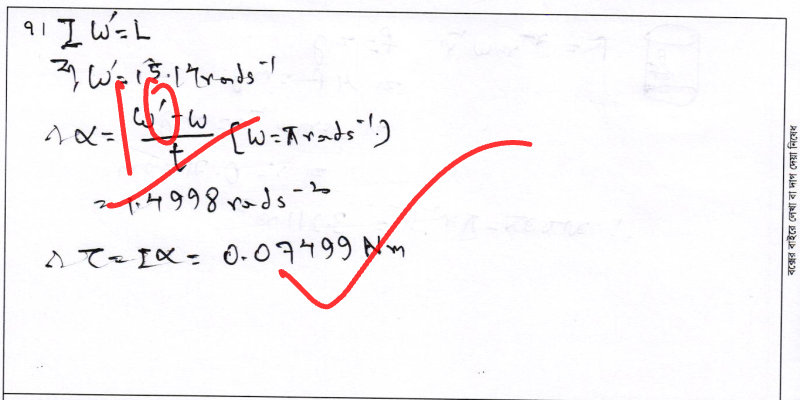 9। I ω' = L
বা, ω' = 15.14 rads⁻¹
∴ α = (ω' - ω)/t [ω = π rads⁻¹]
= 1.4998 rads⁻²
∴ τ = Iα = 0.07499 Nm
বক্সের বাইরে লেখা বা দাগ দেয়া নিষেধ